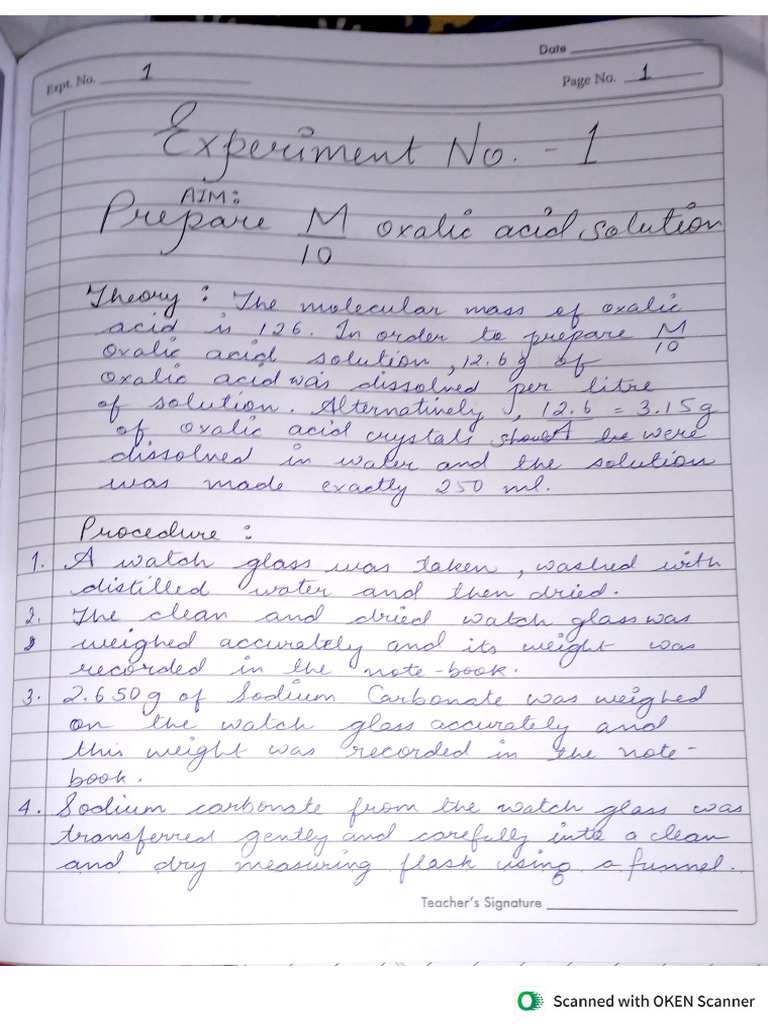 Date
Expt. No. 1
Page No. 1
Experiment No. - 1
AIM:
Prepare M/10 oxalic acid solution
Theory : The molecular mass of oxalic
acid is 126. In order to prepare M/10
oxalic acid solution, 12.6g of
oxalic acid was dissolved per litre
of solution. Alternatively, 12.6/4 = 3.15g
of oxalic acid crystals should be were
dissolved in water and the solution
was made exactly 250 ml.
Procedure :
1. A watch glass was taken, washed with
distilled water and then dried.
2. The clean and dried watch glass was
weighed accurately and its weight was
recorded in the note-book.
3. 2.650g of Sodium Carbonate was weighed
on the watch glass accurately and
this weight was recorded in the note-
book.
4. Sodium carbonate from the watch glass was
transferred gently and carefully into a clean
and dry measuring flask using a funnel.
Teacher's Signature
Scanned with OKEN Scanner